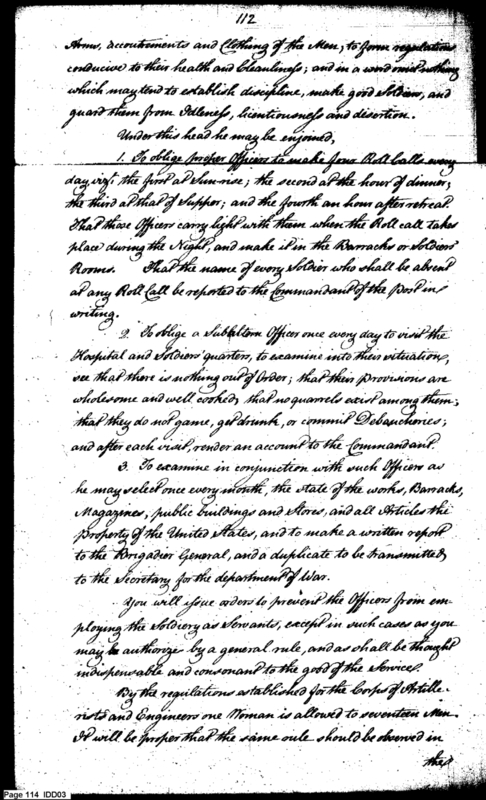 112
Arms, accoutrements and Clothing of the Men; to form regulations
conducive to their health and Cleanliness; and in a word omit nothing
which may tend to establish discipline, make good Soldiers, and
guard them from Idleness, licentiousness and desertion.
Under this head he may be enjoined,
1. To oblige proper Officers to make four Roll Calls every
day, vizt. the first at Sun-rise; the second at the hour of dinner;
the third at that of Supper; and the fourth an hour after retreat.
That those Officers carry light with them when the Roll call takes
place during the Night, and make it in the Barracks or Soldiers
Rooms. That the name of every Soldier who shall be absent
at any Roll Call be reported to the Commandant of the Post in
writing.
2. To oblige a Subaltern Officer once every day to visit the
Hospital and Soldiers quarters, to examine into their situation,
see that there is nothing out of Order; that their Provisions are
wholesome and well cooked; that no quarrels exist among them;
that they do not game, get drunk, or commit Debaucheries;
and after each visit, render an account to the Commandant.
3. To examine in conjunction with such Officers as
he may select once every month, the state of the works, Barracks,
Magazines, public buildings and Stores, and all Articles the
property of the United States, and to make a written report
to the Brigadier General, and a duplicate to be transmitted
to the Secretary for the department of War.
You will issue orders to prevent the Officers from em-
ploying the Soldiery as Servants, except in such cases as you
may be authorize by a general rule, and as shall be thought
indispensable and consonant to the good of the Services.
By the regulations established for the Corps of Artille-
rists and Engineers one Woman is allowed to seventeen Men.
It will be proper that the same rule should be observed in
the
Page 114 IDD03